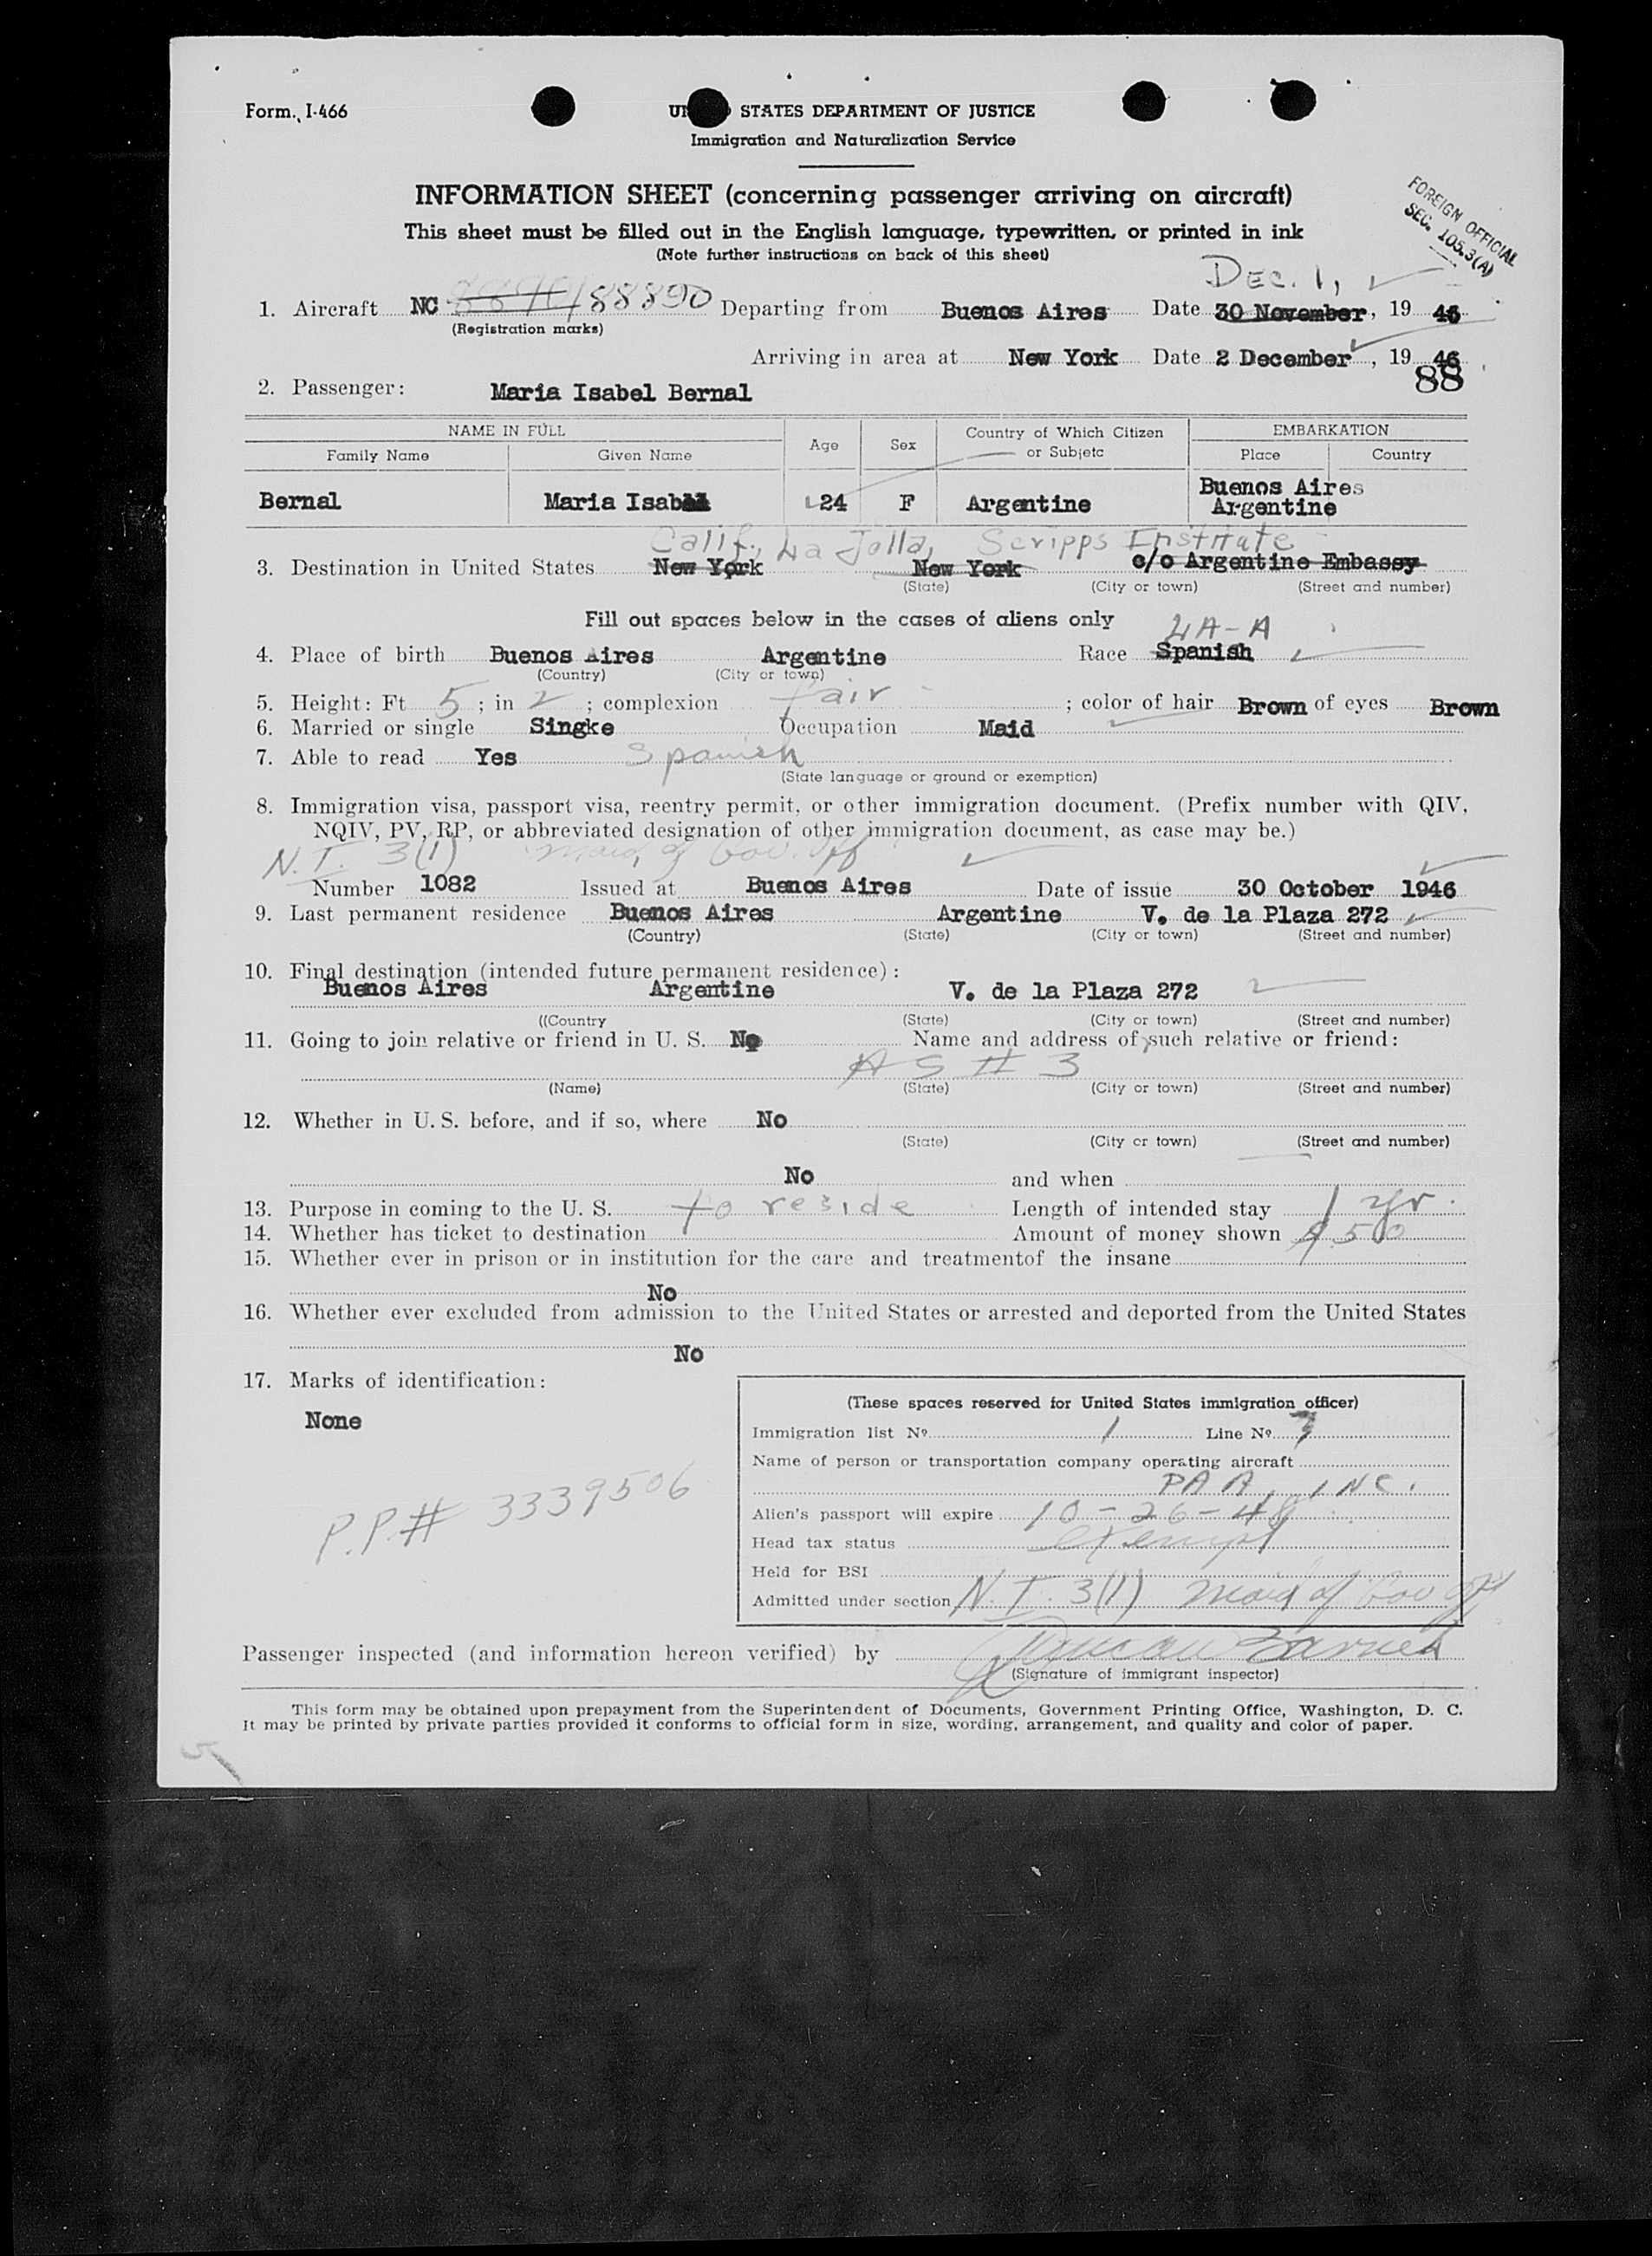 Form. I-466
UNITED STATES DEPARTMENT OF JUSTICE
Immigration and Naturalization Service
INFORMATION SHEET (concerning passenger arriving on aircraft)
This sheet must be filled out in the English language, typewritten, or printed in ink
(Note further instructions on back of this sheet)
FOREIGN OFFICIAL
SEC. 105.3(A)
DEC. 1,
1. Aircraft NC 88890 Departing from Buenos Aires Date 30 November, 19 46
(Registration marks)
Arriving in area at New York Date 2 December, 19 46
88
2. Passenger: Maria Isabel Bernal
NAME IN FULL Age Sex Country of Which Citizen or Subjetc EMBARKATION
Family Name Given Name Place Country
Bernal Maria Isabel 24 F Argentine Buenos Aires Argentine
Calif., La Jolla, Scripps Institute
3. Destination in United States New York New York c/o Argentine Embassy
(State) (City or town) (Street and number)
Fill out spaces below in the cases of aliens only
LA-A
4. Place of birth Buenos Aires Argentine Race Spanish
(Country) (City or town)
5. Height: Ft 5 ; in 2 ; complexion fair ; color of hair Brown of eyes Brown
6. Married or single Singke Occupation Maid
7. Able to read Yes Spanish
(State language or ground or exemption)
8. Immigration visa, passport visa, reentry permit, or other immigration document. (Prefix number with QIV,
NQIV, PV, RP, or abbreviated designation of other immigration document, as case may be.)
N.I. 3(1) maid of Gov. Off
Number 1082 Issued at Buenos Aires Date of issue 30 October 1946
9. Last permanent residence Buenos Aires Argentine V. de la Plaza 272
(Country) (State) (City or town) (Street and number)
10. Final destination (intended future permanent residence):
Buenos Aires Argentine V. de la Plaza 272
((Country (State) (City or town) (Street and number)
11. Going to join relative or friend in U. S. No Name and address of such relative or friend:
AS # 3
(Name) (State) (City or town) (Street and number)
12. Whether in U. S. before, and if so, where No
(State) (City or town) (Street and number)
No and when
13. Purpose in coming to the U. S. to reside Length of intended stay 1 yr.
14. Whether has ticket to destination Amount of money shown $500
15. Whether ever in prison or in institution for the care and treatmentof the insane
No
16. Whether ever excluded from admission to the United States or arrested and deported from the United States
No
17. Marks of identification:
None
P.P.# 3339506
(These spaces reserved for United States immigration officer)
Immigration list Nº 1 Line Nº 7
Name of person or transportation company operating aircraft
PAA, INC.
Alien's passport will expire 10-26-48
Head tax status exempt
Held for BSI
Admitted under section N.I. 3(1) maid of Gov Off
Passenger inspected (and information hereon verified) by
(Signature of immigrant inspector)
This form may be obtained upon prepayment from the Superintendent of Documents, Government Printing Office, Washington, D. C.
It may be printed by private parties provided it conforms to official form in size, wording, arrangement, and quality and color of paper.